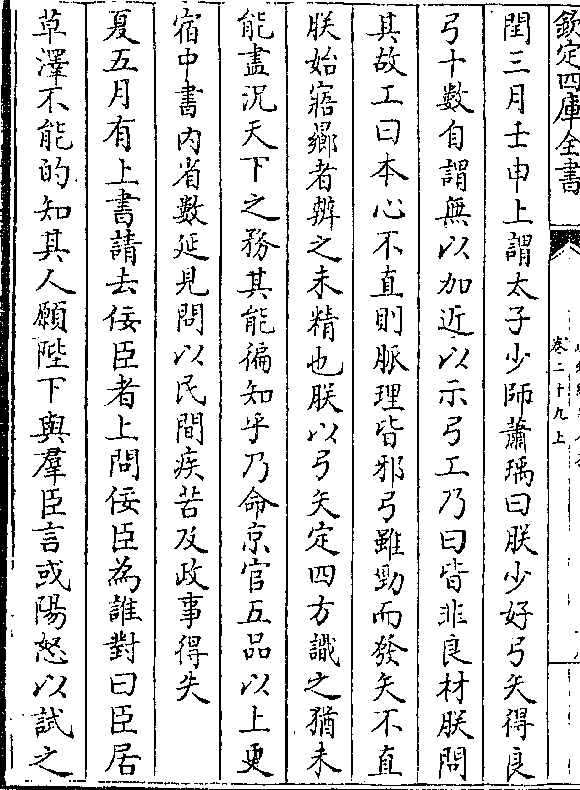 欽定四庫全書
卷二十九上
閏三月壬申上謂太子少師蕭瑀曰朕少好弓矢得良
弓十數自謂無以加近以示弓工乃曰皆非良材朕問
其故工曰本心不直則脈理皆邪弓雖勁而發矢不直
朕始寤曏者辨之未精也朕以弓矢定四方識之猶未
能盡況天下之務其能徧知乎乃命京官五品以上更
宿中書內省數延見問以民間疾苦及政事得失
夏五月有上書請去佞臣者上問佞臣為誰對曰臣居
草澤不能的知其人願陛下與羣臣言或陽怒以試之